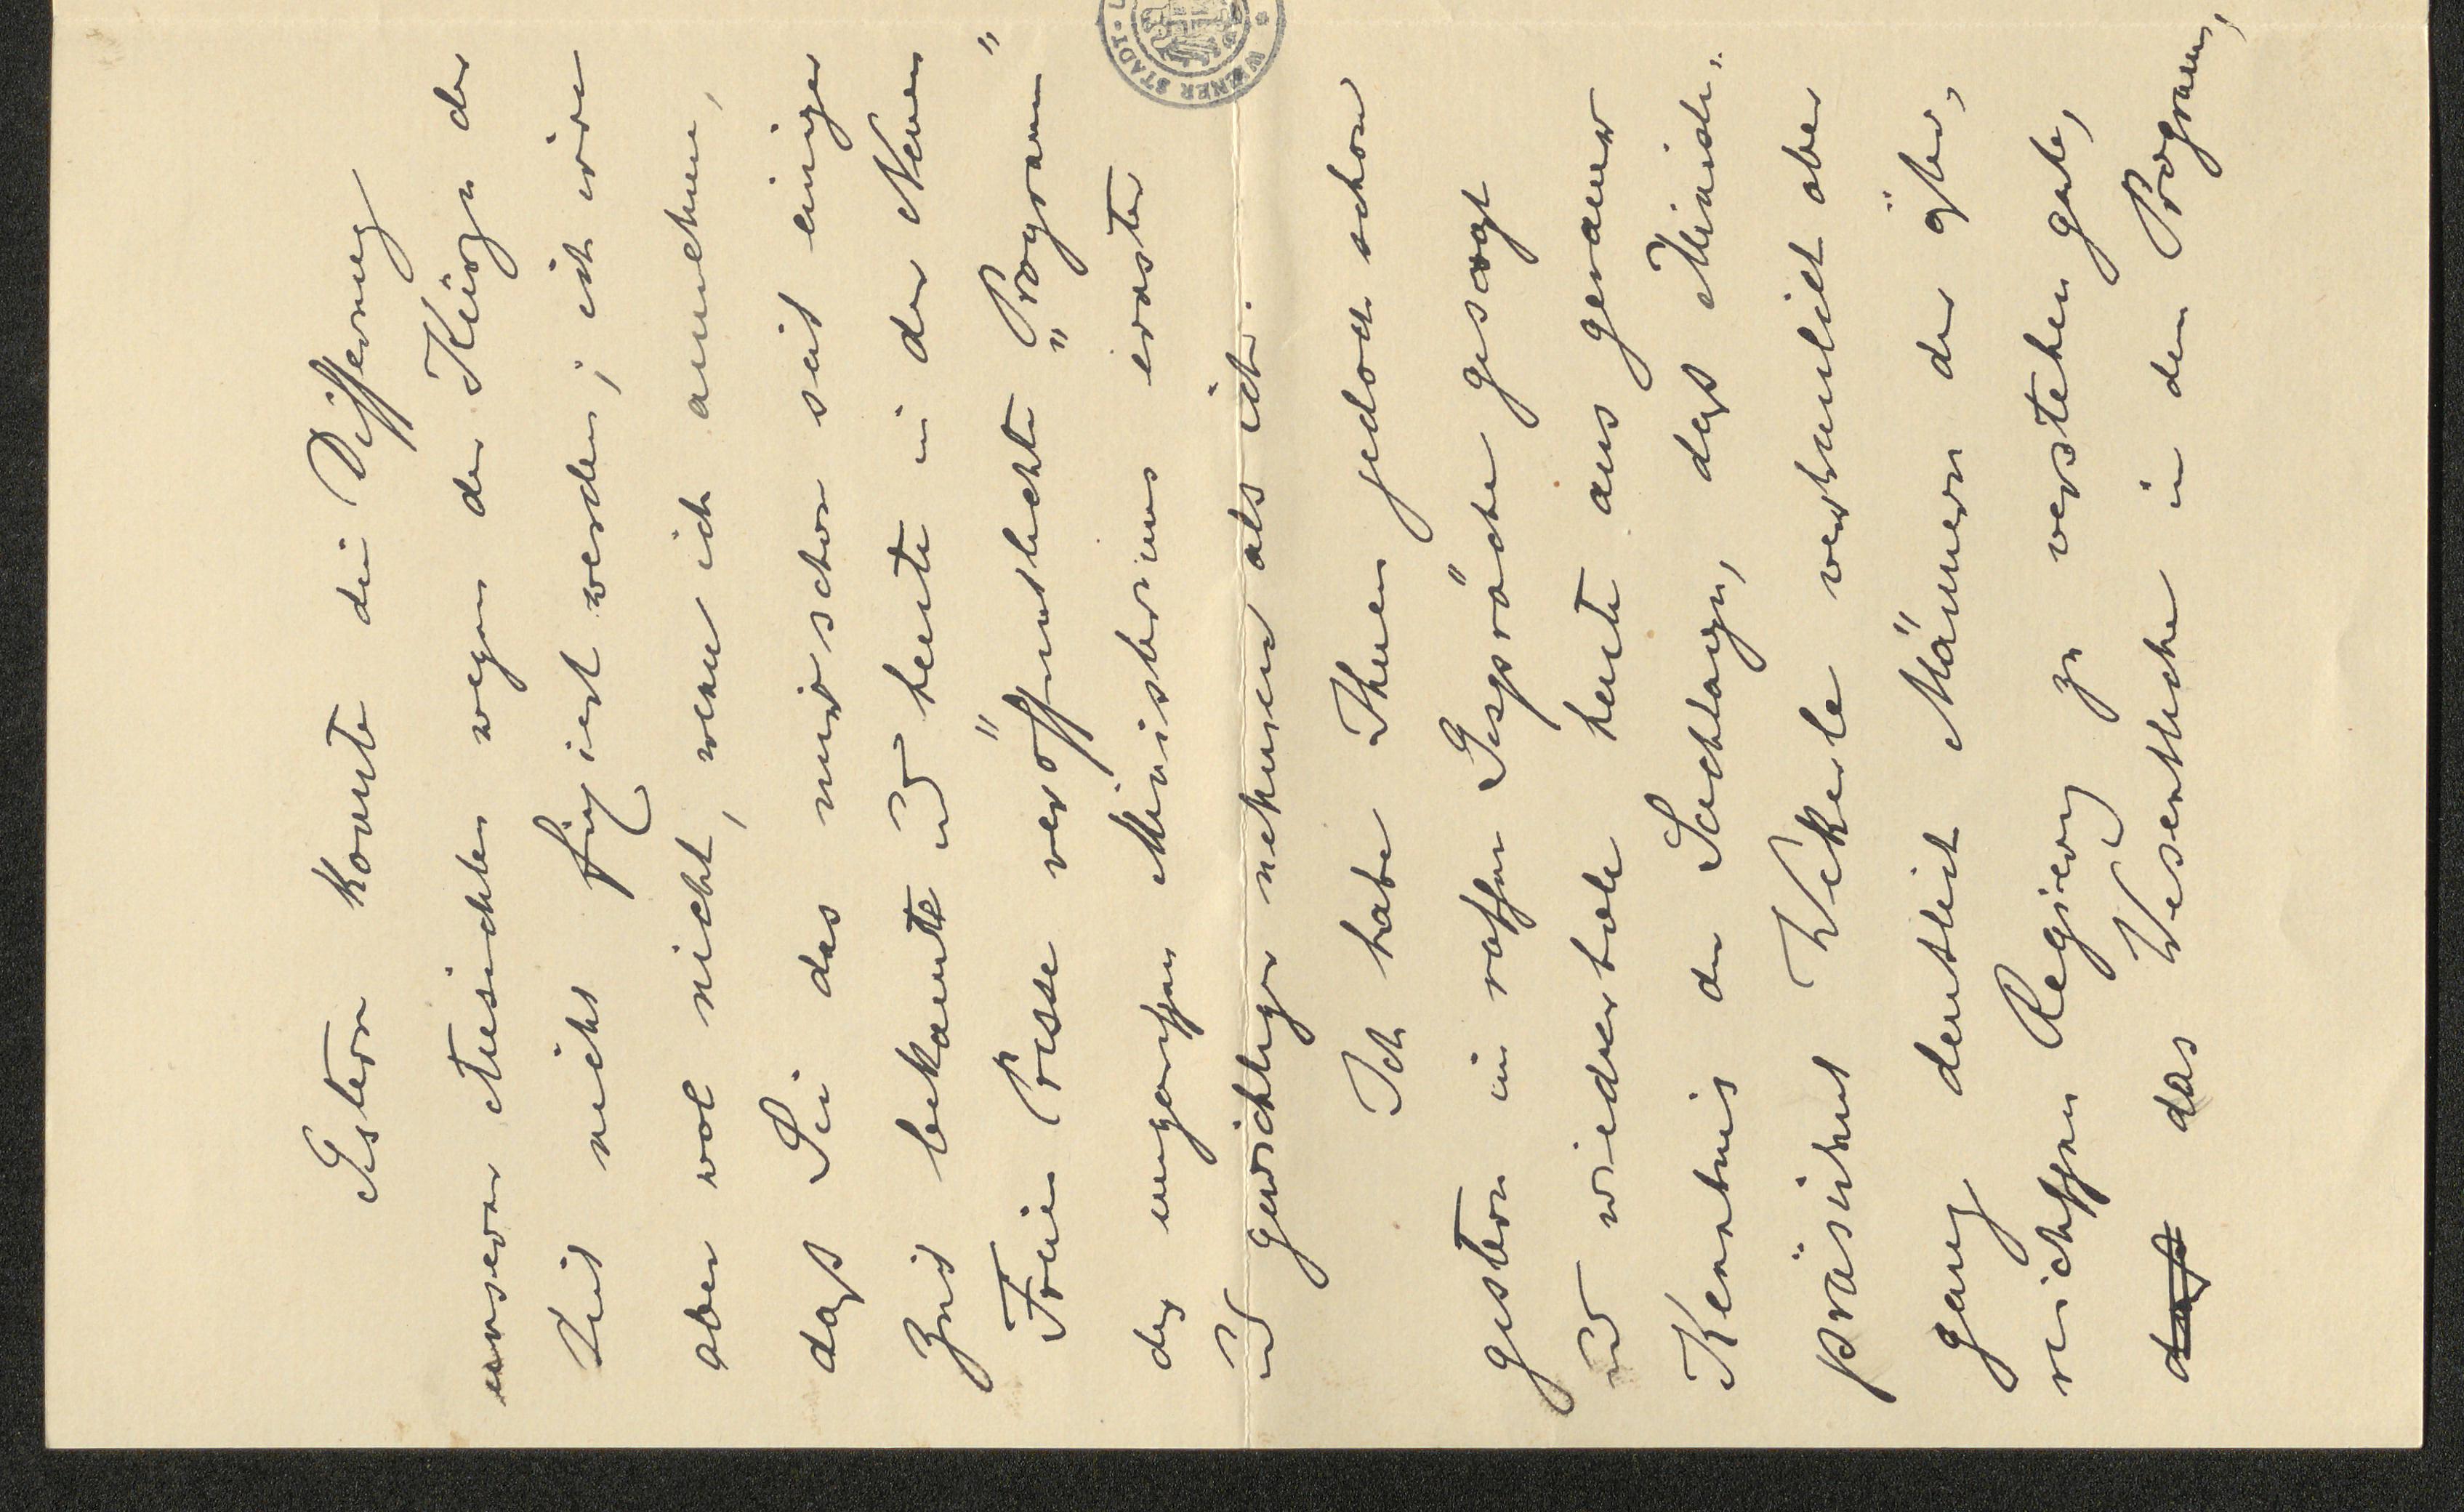 Gestern konnte die Differenz
unserer Ansichten wegen der Kürze der
Zeit nicht fixiert werden; ich irre
aber wol nicht, wenn ich annehme,
daß Sie das mir schon seit einiger
Zeit bekannte u heute in der Neuen
Freien Presse veröffentlichte „Program"
des ungarischen Ministeriums ernster
u gewichtiger nehmen als ich.
Ich habe Ihnen jedoch schon
gestern im raschen Gespräche gesagt
u wiederhole heute aus genauer
Kenntnis der Sachlage, daß Minister-
präsident Wekerle vertraulich aber
ganz deutlich Männern der öster-
reichischen Regierung zu verstehen gab,
das Wesentliche in dem Program,
WIENER STADT-